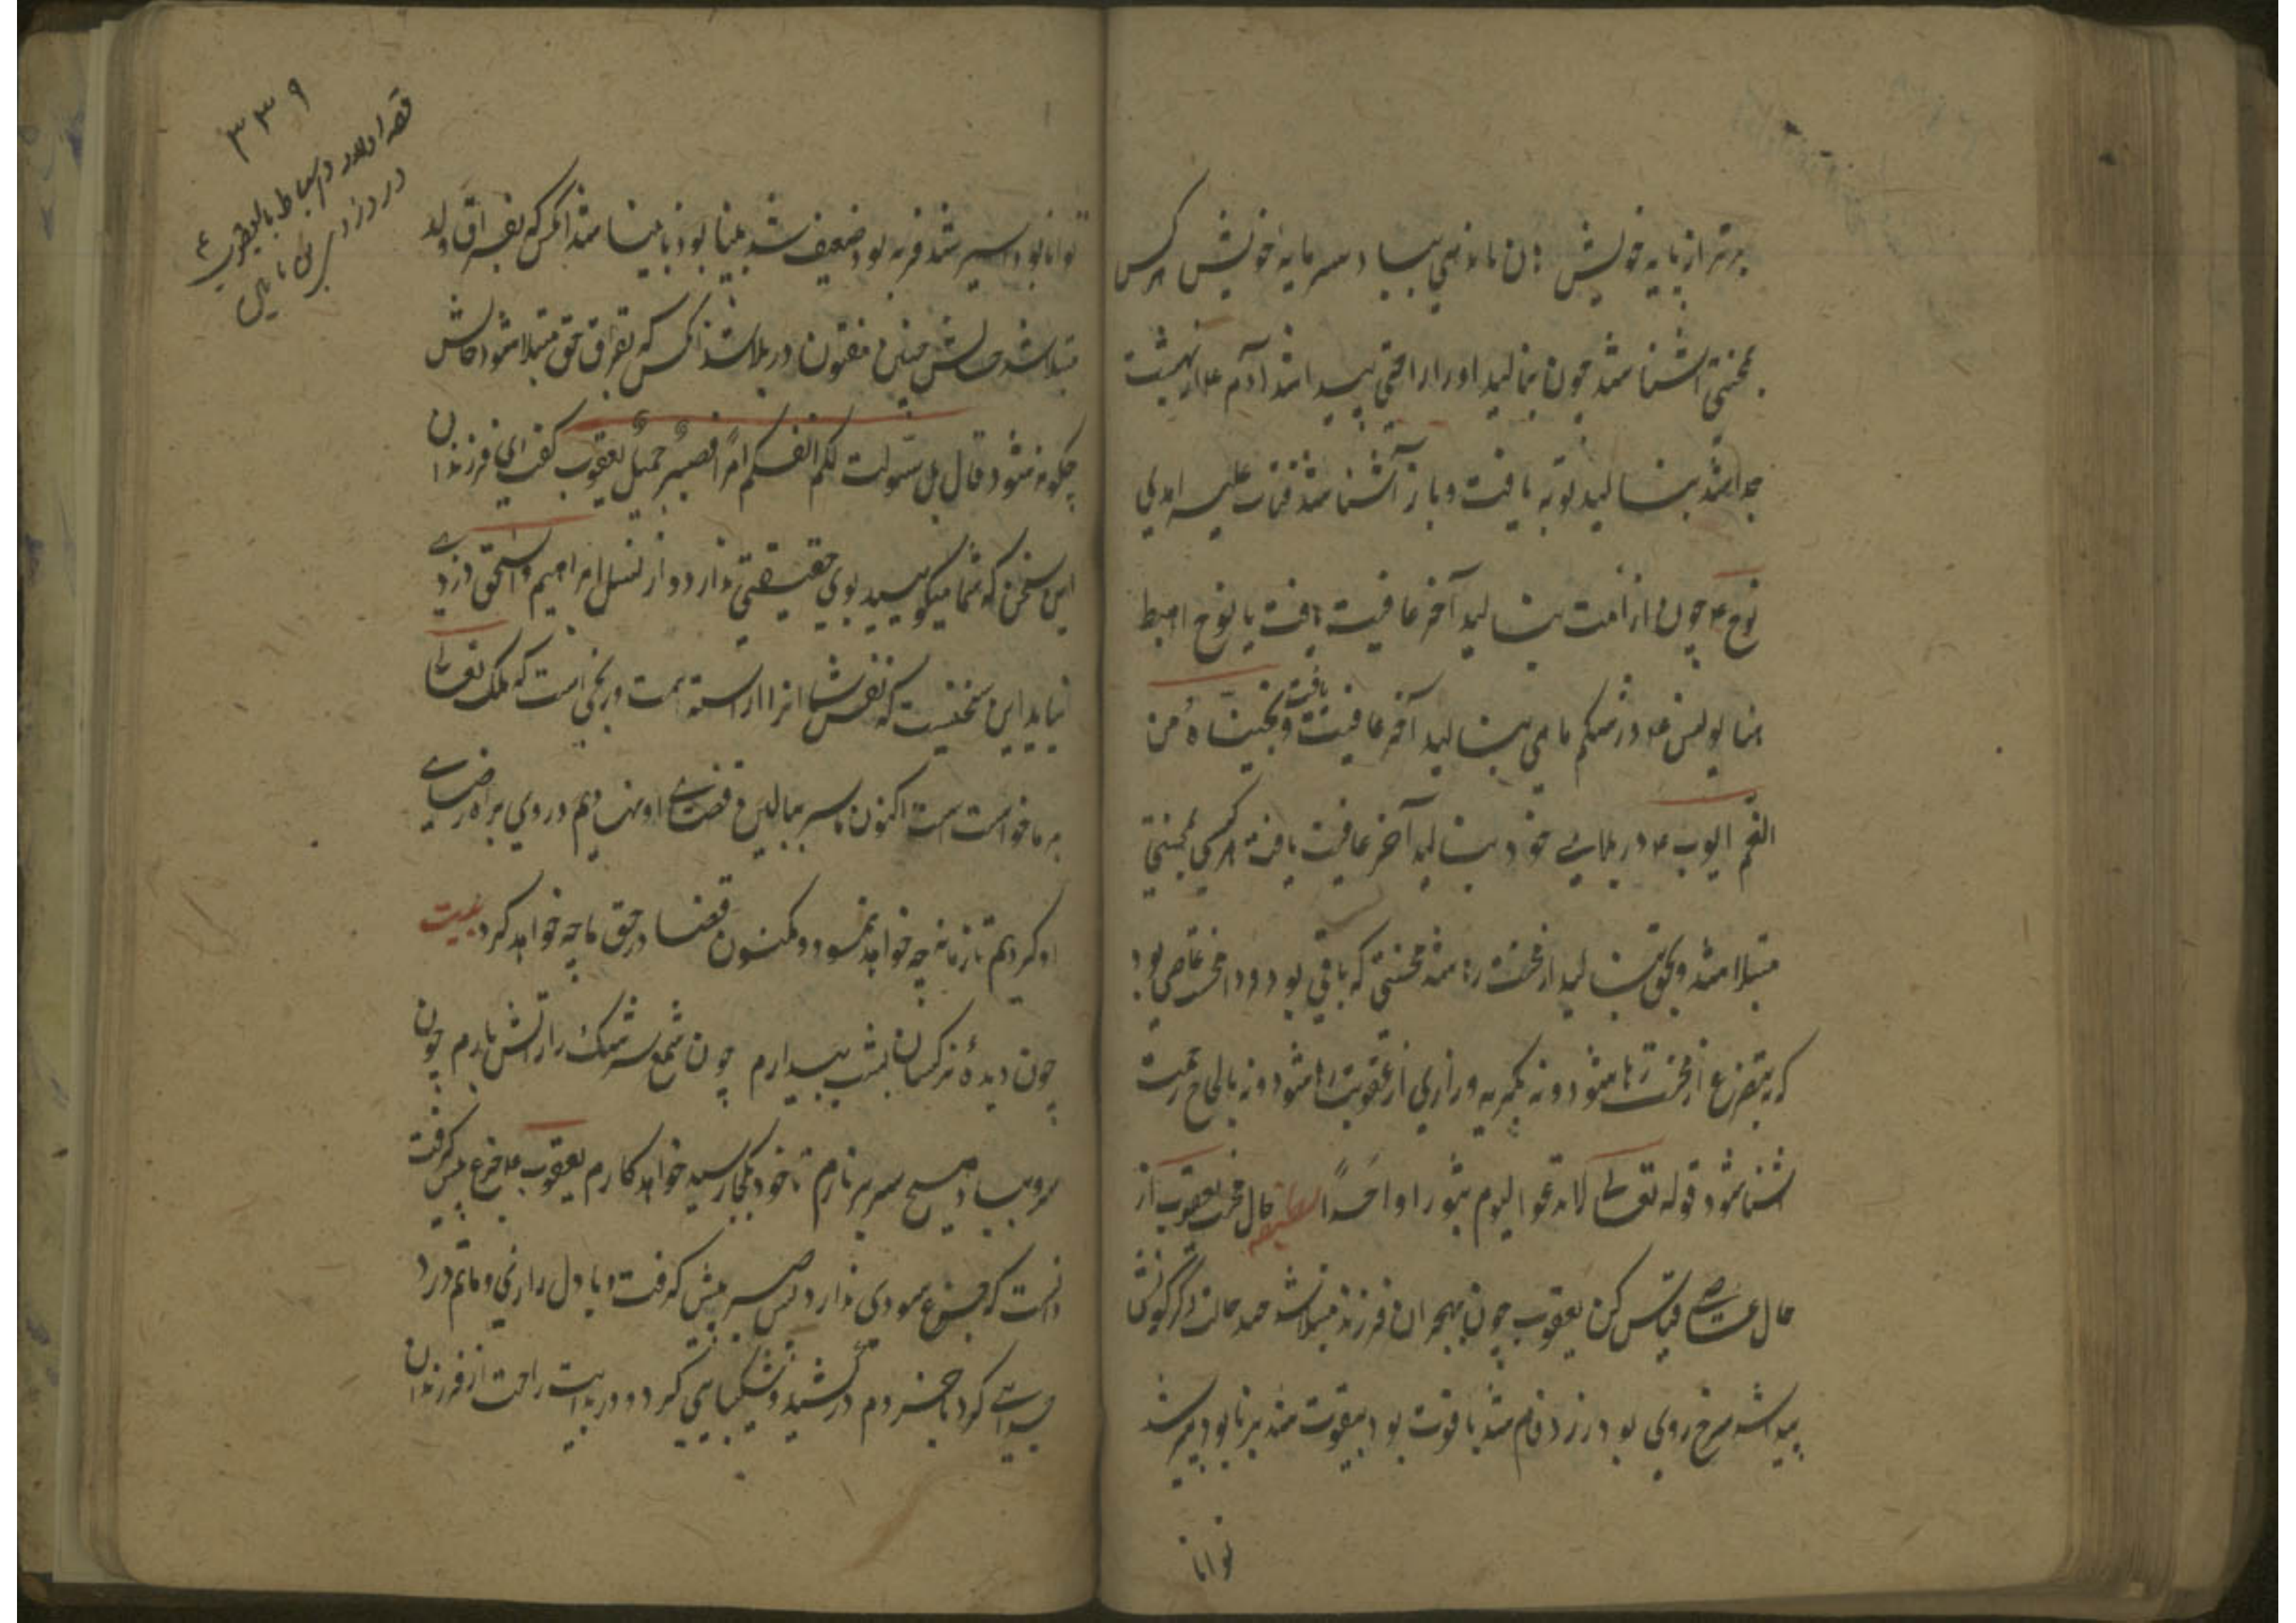 برتر از پایه خویش هان مانده بی بیاد سرمایه خویش هرکس
بمحنتی آشنا شد چون بنالید او را راحتی پیدا شد آدم ع از بهشت
جدا شد بنالید توبه یافت و باز آشنا شد فتاب علیه و هدی
نوح ع چون از امت بنالید آخر عافیت یافت یا نوح اهبط
منا یونس ع در شکم ماهی بنالید آخر عافیت یافت و نجیناه من
الغم ایوب ع در بلای خود بنالید آخر عافیت یافت هرکسی بمحنتی
مبتلا شد و بحق بنالید از محنت رها شد محنتی که باقی بود و د محنت عاصی بود
که نه بتضرع از محنت رها شود و نه بگریه و زاری از عقوبت رها شود و نه بالحاح رحمت
آشنا شود قوله تعالی لا تدعوا الیوم ثبورا واحدًا لطیفه حال محنت یعقوب از
حال عاصی قیاس کن یعقوب چون بهجران فرزند مبتلا شد صد حالت دگرگونش
پیدا شد سرخ روی بود زرد فام شد با قوت بود بیقوت شد برنا بود پیر شد
توانا
۳۳۹
قصه اولاد و اسباط با یعقوب ع
در دزدی بن یامین
توانا بود اسیر شد فربه بود ضعیف شد بینا بود نابینا شد آنکس که بفراق ولد
مبتلا شد حالش چنین مفتون در بلا شد آنکس که بفراق حق مبتلا شود حالش
چگونه شود قال بل سولت لکم انفسکم امرًا فصبرٌ جمیلٌ یعقوب گفت ای فرزندان
این سخن که شما میگویید بوی حقیقتی ندارد و از نسل ابراهیم و اسحق دزدی
نیاید این سخنیست که نفس شما آنرا آراسته است و رنجی است که ملک تعالی
بر ما خواسته است اکنون ما سر ببالین قضای او نهادیم و روی براه رضای
او کردیم تا زمانه چه خواهد نمود و مکنون قضا در حق ما چه خواهد کرد بیت
چون دیده نرگسان بشب بیدارم چون شمع سرشک را ز آتش بارم چون
سرو بباد صبح سر بر نارم تا خود بکجا رسید خواهد کارم یعقوب ع جزع پیش گرفت
دانست که جزع سودی ندارد پس صبر پیش گرفت و با دل رازی و ماتم درد
جدایی کرد با خبر دم در کشید و شکیبایی کرد و در بدایت راحت از فرزندان